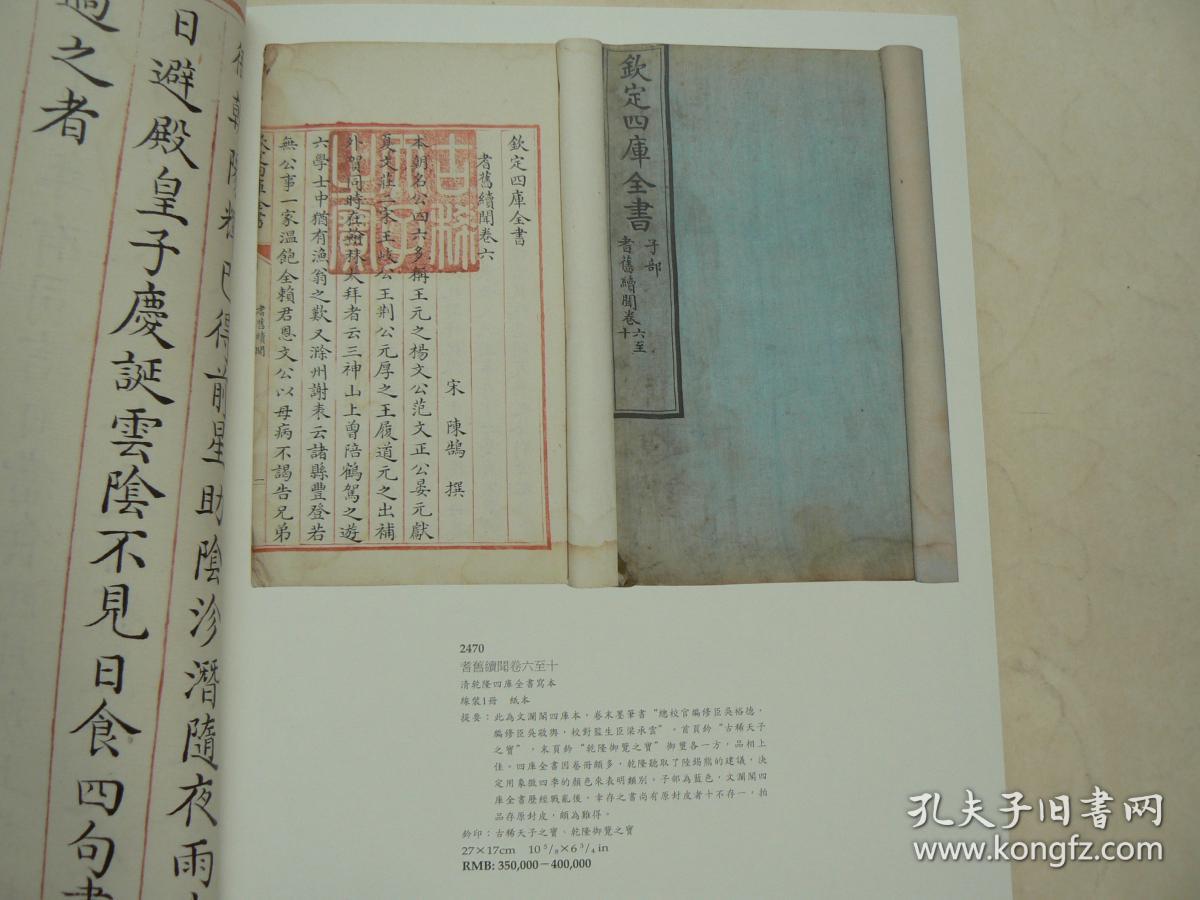 過之者
日避殿皇子慶誕雲陰不見日食四句書
巳得前星助陰沴潛隨夜雨
欽定四庫全書
耆舊續聞卷六
宋 陳鵠 撰
本朝名公四六多稱王元之楊文公范文正公晏元獻
夏文莊二宋王岐公王荆公元厚之王履道元之出補
外賀同時在翰林大拜者云三神山上曽陪鶴駕之遊
六學士中猶有漁翁之歎又滁州謝表云諸縣豐登若
無公事一家溫飽全賴君恩文公以母病不謁告兄弟
欽定四庫全書
耆舊續聞
一
古稀天子之寶
欽定四庫全書
子部
耆舊續聞卷六至十
2470
耆舊續聞卷六至十
清乾隆四庫全書寫本
線裝1冊 紙本
提要：此為文瀾閣四庫本，卷末墨筆書“總校官編修臣吳裕德，
編修臣吳敬輿，校對監生臣梁承雲”。首頁鈐“古稀天子
之寶”，末頁鈐“乾隆御覽之寶”御璽各一方，品相上
佳。四庫全書因卷冊頗多，乾隆聽取了陸錫熊的建議，決
定用象徵四季的顏色來表明類別。子部為藍色，文瀾閣四
庫全書歷經戰亂後，幸存之書尚有原封皮者十不存一，拍
品存原封皮，頗為難得。
鈐印：古稀天子之寶、乾隆御覽之寶
27×17cm 10 5/8×6 3/4 in
RMB: 350,000－400,000
孔夫子旧書网
www.kongfz.com